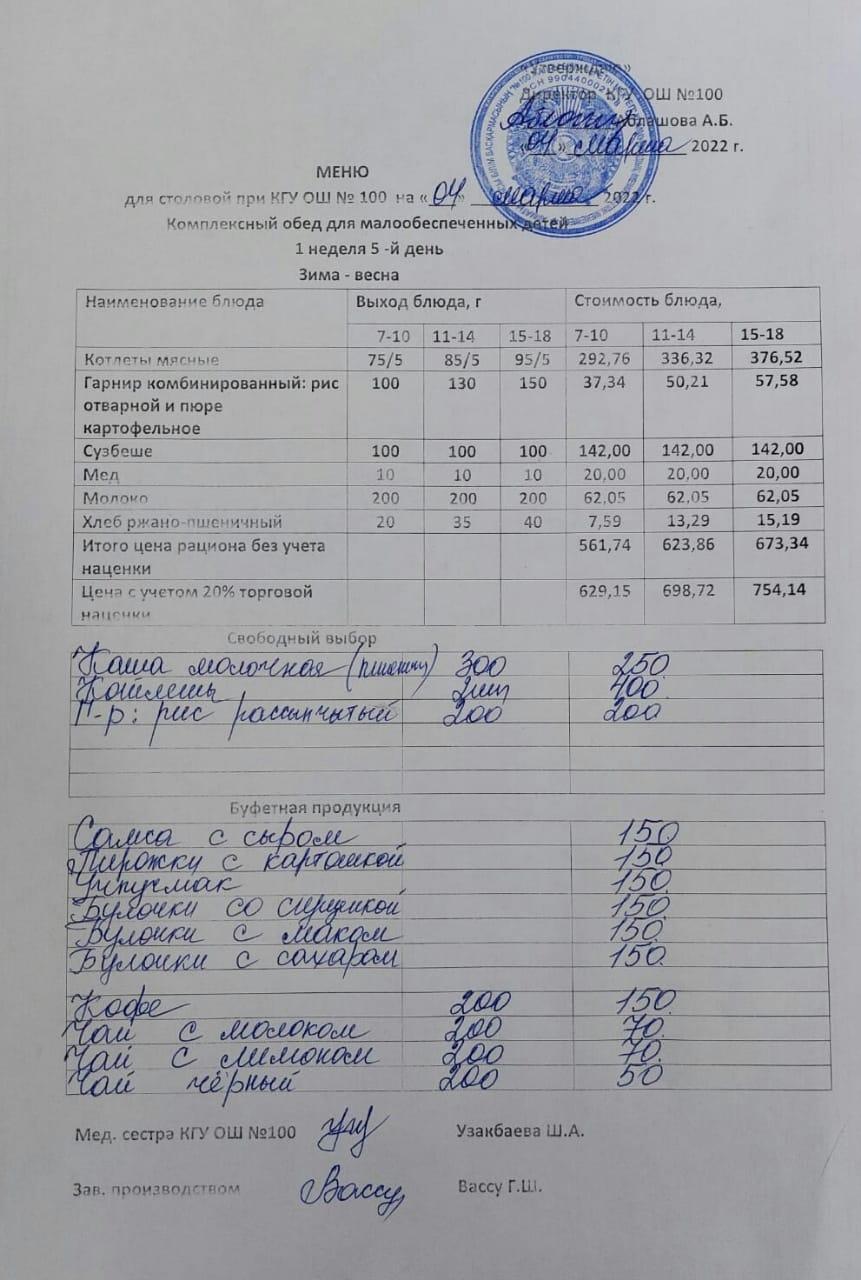 «Утверждаю»
Директор КГУ ОШ №100
Аблашова А.Б.
«04» марта 2022 г.
МЕНЮ
для столовой при КГУ ОШ № 100 на «04» марта 2022 г.
Комплексный обед для малообеспеченных детей
1 неделя 5 -й день
Зима - весна
Наименование блюда Выход блюда, г Стоимость блюда,
7-10 11-14 15-18 7-10 11-14 15-18
Котлеты мясные 75/5 85/5 95/5 292,76 336,32 376,52
Гарнир комбинированный: рис 100 130 150 37,34 50,21 57,58
отварной и пюре
картофельное
Сузбеше 100 100 100 142,00 142,00 142,00
Мед 10 10 10 20,00 20,00 20,00
Молоко 200 200 200 62,05 62,05 62,05
Хлеб ржано-пшеничный 20 35 40 7,59 13,29 15,19
Итого цена рациона без учета 561,74 623,86 673,34
наценки
Цена с учетом 20% торговой 629,15 698,72 754,14
наценки
Свободный выбор
Каша молочная 300 250
Котлеты 2шт 400
Г-р: рис рассыпчатый 200 200
Буфетная продукция
Самса с сыром 150
Пирожки с картошкой 150
Учпучмак 150
Булочки со сгущенкой 150
Булочки с маком 150
Булочки с сахаром 150
Кофе 200 150
Чай с молоком 200 70
Чай с лимоном 200 70
Чай чёрный 200 50
Мед. сестра КГУ ОШ №100 Узакбаева Ш.А.
Зав. производством Вассу Вассу Г.Ш.